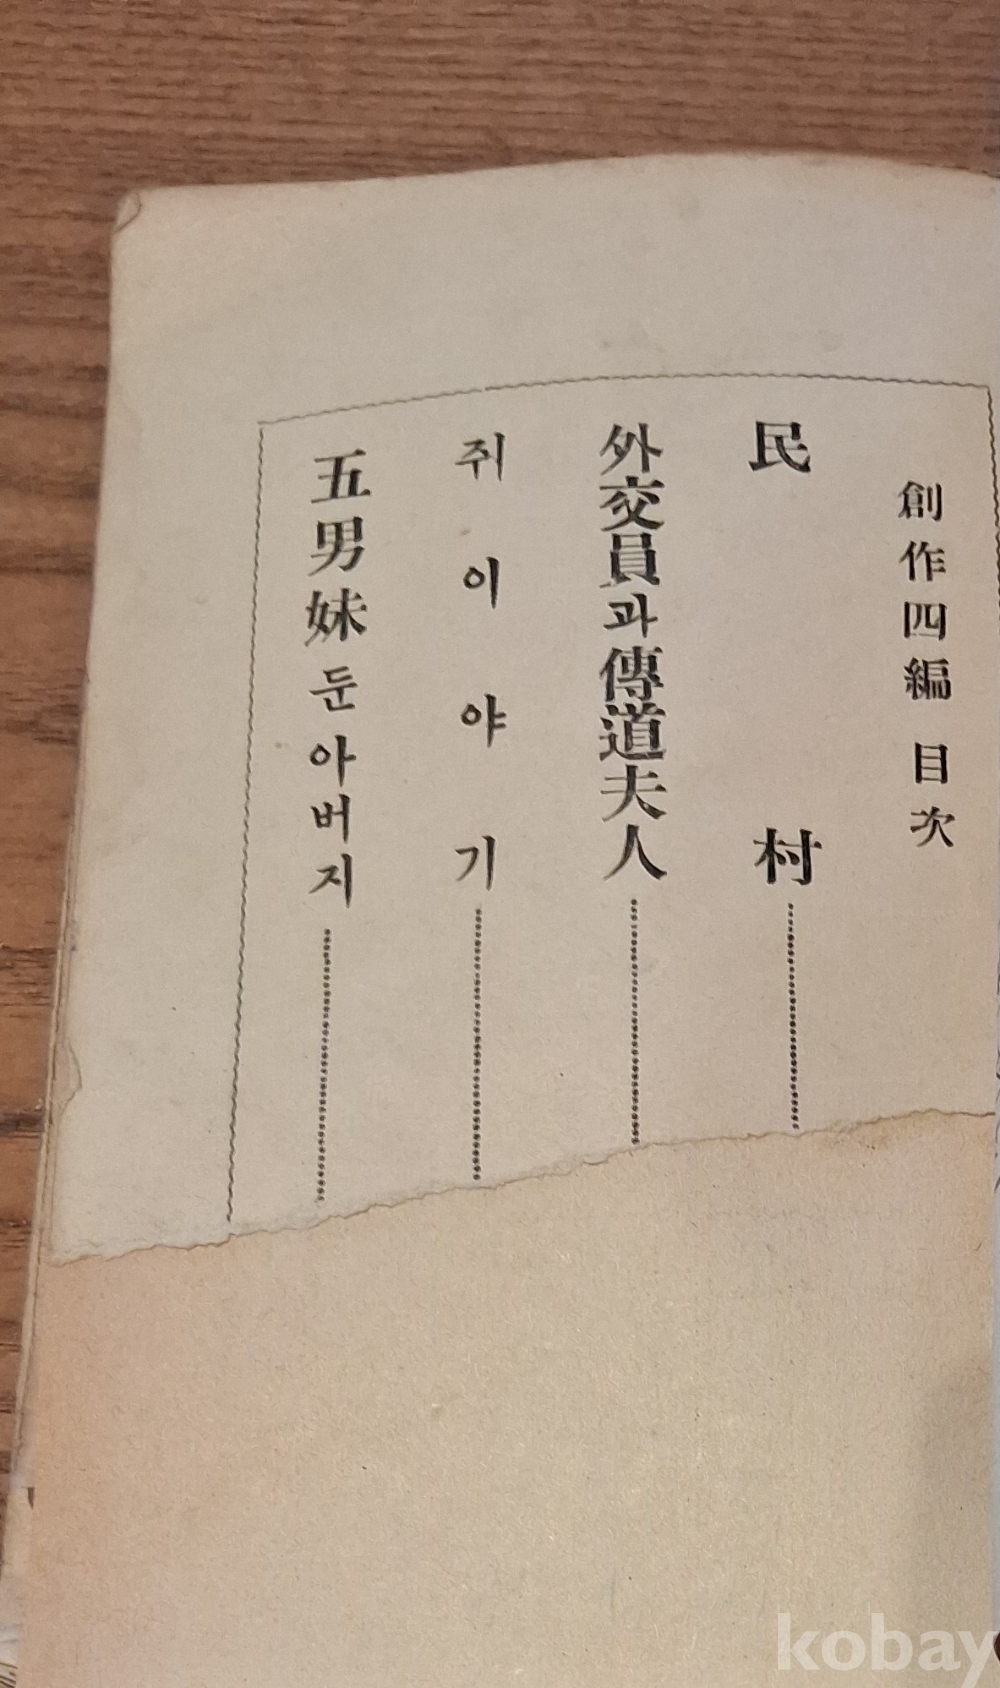 創作四編 目次
民村
外交員과傳道夫人
쥐이야기
五男妹둔아버지
kobay